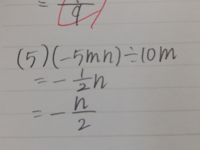 9
(5) (-5mn)÷10m
= -1/2 n
= -n/2